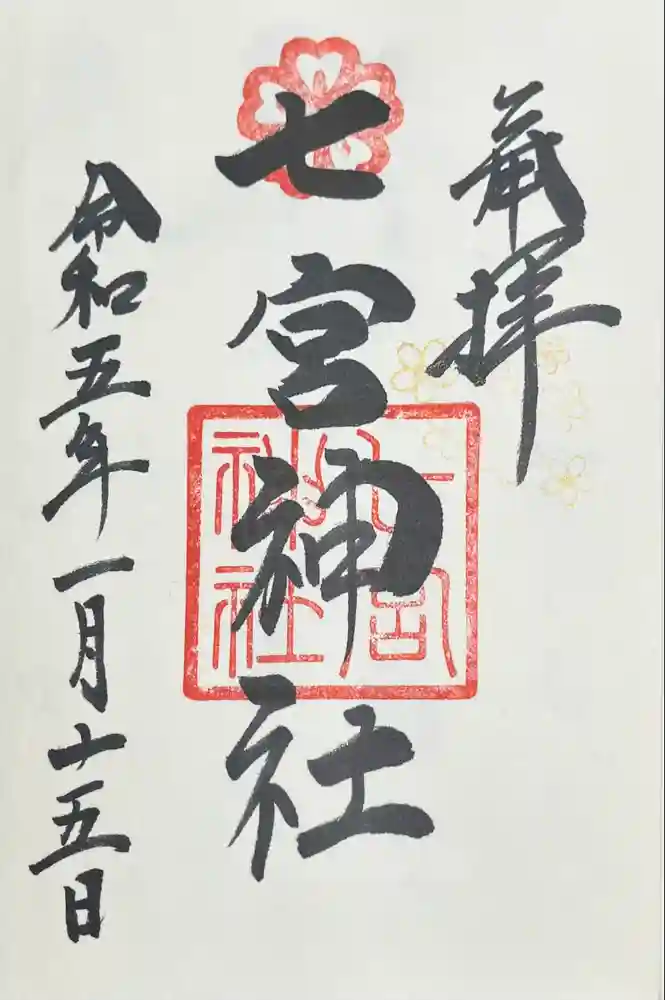 奉拝
七宮神社
七宮
神社
令和五年一月十五日